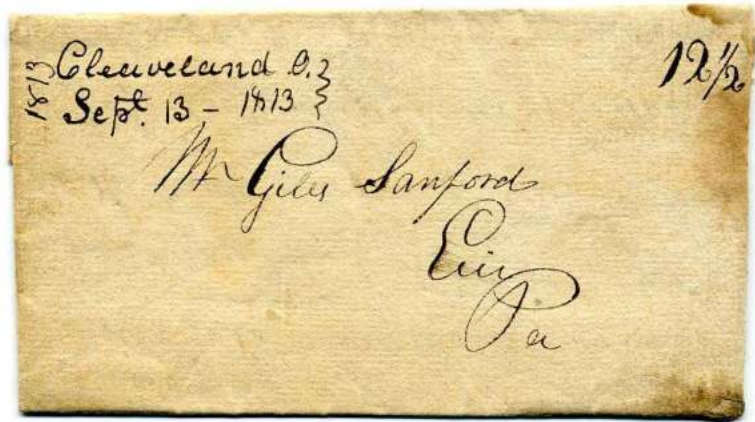 1813
Cleaveland O.
Sept. 13 - 1813
12 1/2
Mr Giles Sanford
Erie
Pa